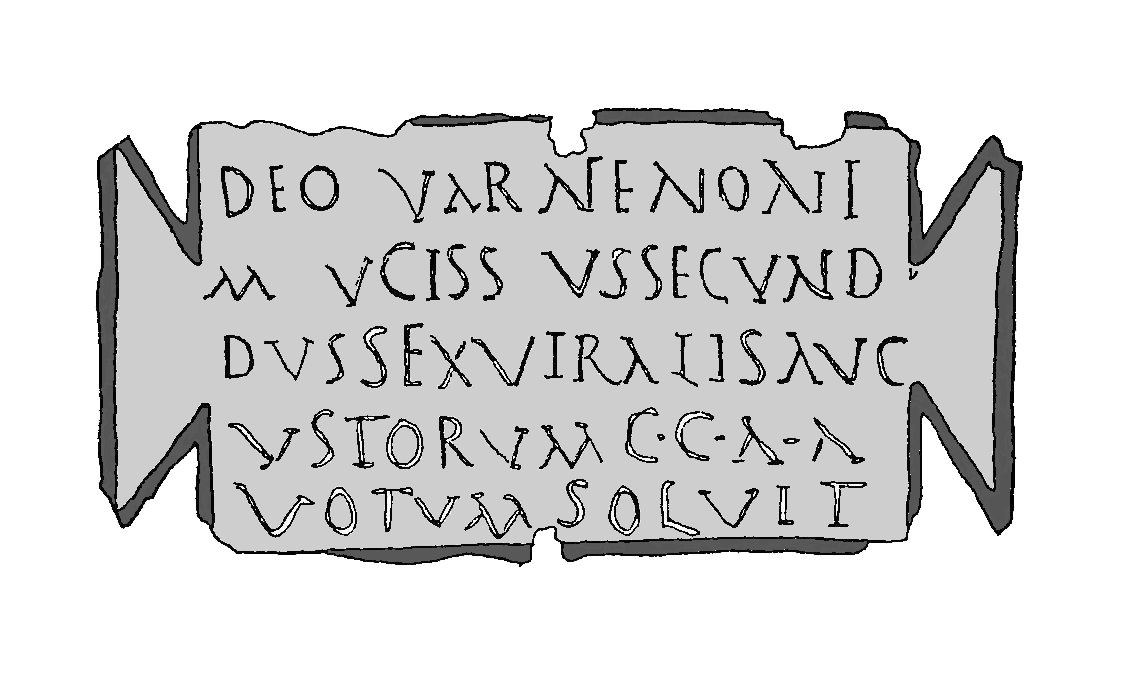 DEO VARNENONI
M VCISS VSSECVND
DVSSEXVIRALISAVC
VSTORVM C·C·A·A
VOTVM SOLVIT